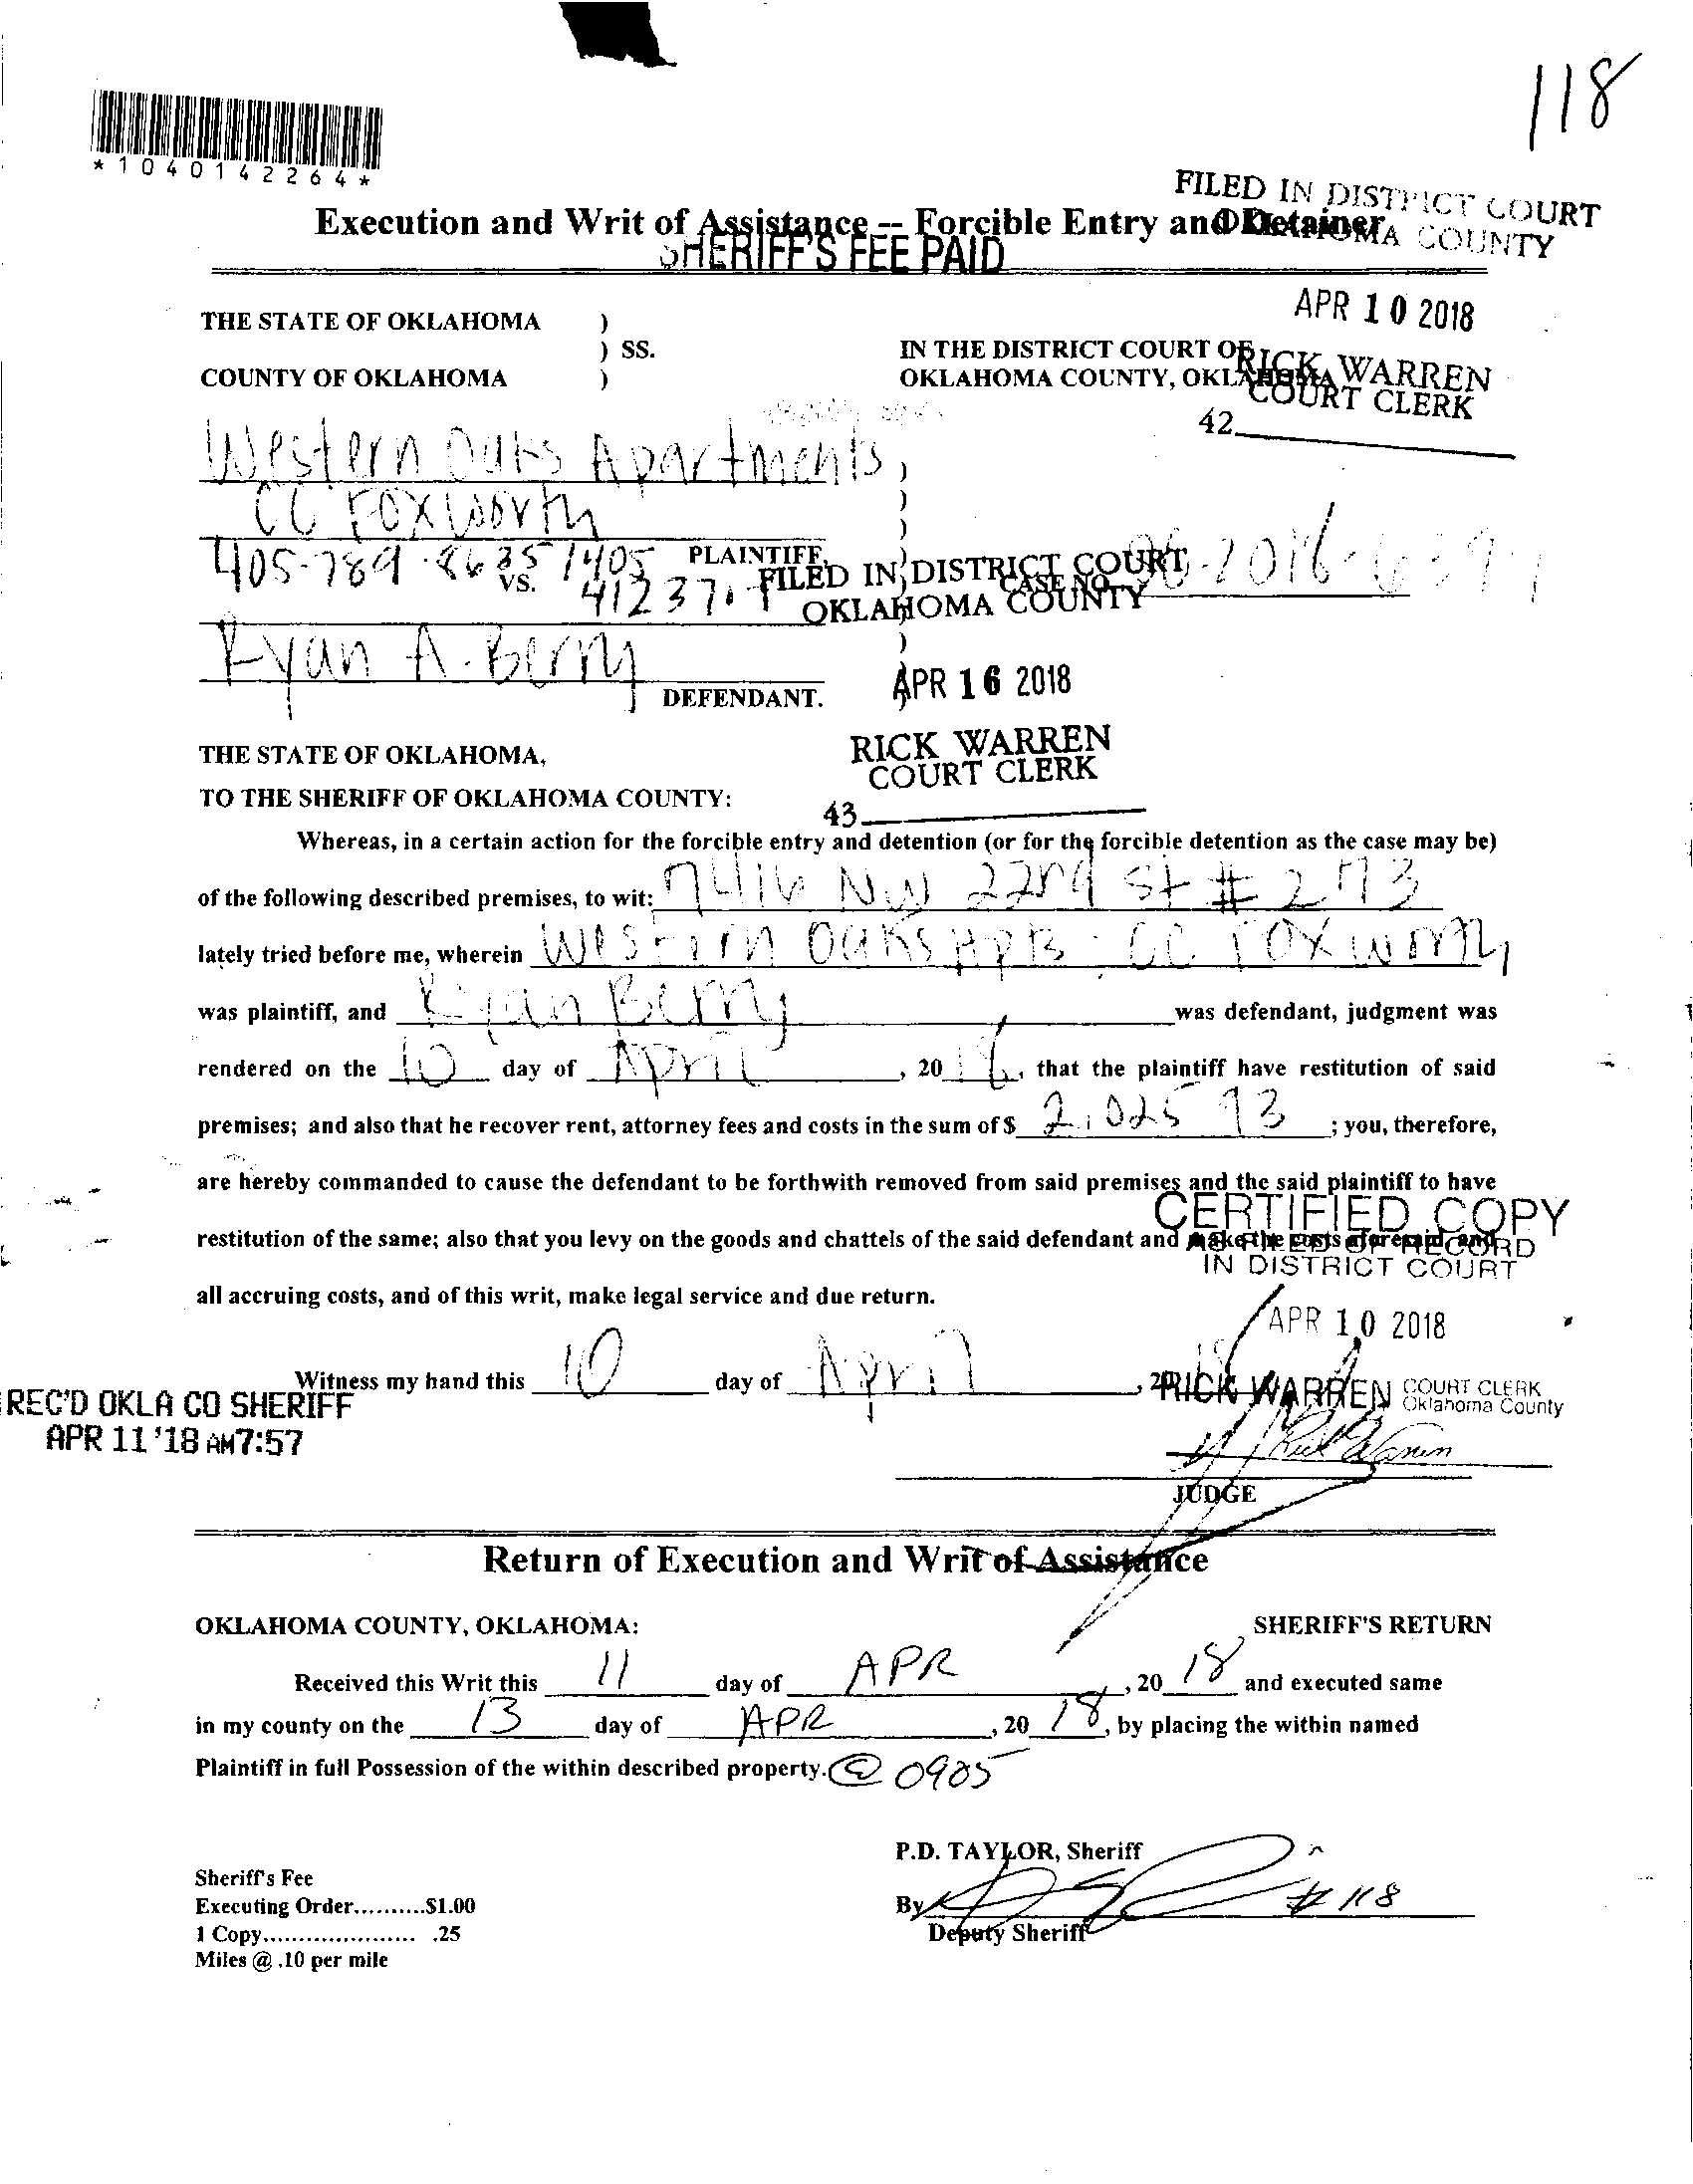 118
*1040142264*
FILED IN DISTRICT COURT
OKLAHOMA COUNTY
Execution and Writ of Assistance -- Forcible Entry and Detainer
SHERIFF'S FEE PAID
APR 10 2018
THE STATE OF OKLAHOMA )
) SS.
COUNTY OF OKLAHOMA )
IN THE DISTRICT COURT OF
OKLAHOMA COUNTY, OKLAHOMA
RICK WARREN
COURT CLERK
42
Western Oaks Apartments,
CC Foxworth
405-789-8635 / 405
PLAINTIFF,
VS.
CASE NO.
FILED IN DISTRICT COURT
OKLAHOMA COUNTY
Ryan A. Berry
DEFENDANT.
APR 16 2018
RICK WARREN
COURT CLERK
43
THE STATE OF OKLAHOMA,
TO THE SHERIFF OF OKLAHOMA COUNTY:
Whereas, in a certain action for the forcible entry and detention (or for the forcible detention as the case may be)
of the following described premises, to wit: 7416 NW 22nd St # 273
lately tried before me, wherein Western Oaks Apts - CC Foxworth
was plaintiff, and Ryan Berry was defendant, judgment was
rendered on the 10 day of April, 20 that the plaintiff have restitution of said
premises; and also that he recover rent, attorney fees and costs in the sum of $ 2,025 93; you, therefore,
are hereby commanded to cause the defendant to be forthwith removed from said premises and the said plaintiff to have
restitution of the same; also that you levy on the goods and chattels of the said defendant and make the costs aforesaid, and
all accruing costs, and of this writ, make legal service and due return.
CERTIFIED COPY
AS FILED OF RECORD
IN DISTRICT COURT
APR 10 2018
Witness my hand this 10 day of April, 20 18
RICK WARREN COURT CLERK
Oklahoma County
Rick Warren
JUDGE
REC'D OKLA CO SHERIFF
APR 11 '18 AM7:57
Return of Execution and Writ of Assistance
OKLAHOMA COUNTY, OKLAHOMA:
SHERIFF'S RETURN
Received this Writ this 11 day of APR, 20 18 and executed same
in my county on the 13 day of APR, 20 18, by placing the within named
Plaintiff in full Possession of the within described property. @ 0905
P.D. TAYLOR, Sheriff
Sheriff's Fee
Executing Order..........$1.00
1 Copy..................... .25
Miles @ .10 per mile
By # 118
Deputy Sheriff